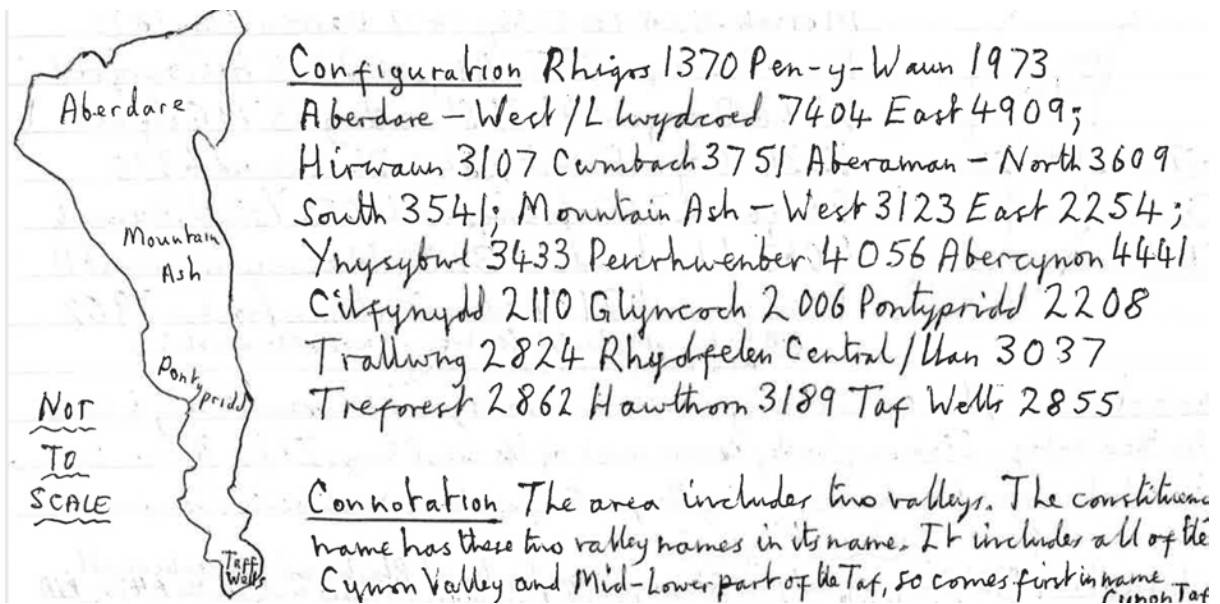 Aberdare
Mountain
Ash
Pontypridd
Taff
Wells
NOT
TO
SCALE
Configuration Rhigos 1370 Pen-y-Waun 1973
Aberdare - West/Llwydcoed 7404 East 4909;
Hirwaun 3107 Cwmbach 3751 Aberaman - North 3609
South 3541; Mountain Ash - West 3123 East 2254;
Ynysybwl 3433 Penrhiwceiber 4056 Abercynon 4441
Cilfynydd 2110 Glyncoch 2006 Pontypridd 2208
Trallwng 2824 Rhydfelen Central/Ilan 3037
Treforest 2862 Hawthorn 3189 Taf Wells 2855
Connotation The area includes two valleys. The constituenc
name has these two valley names in its name. It includes all of the
Cynon Valley and Mid-Lower part of the Taf, so comes first in name
Cynon Taf